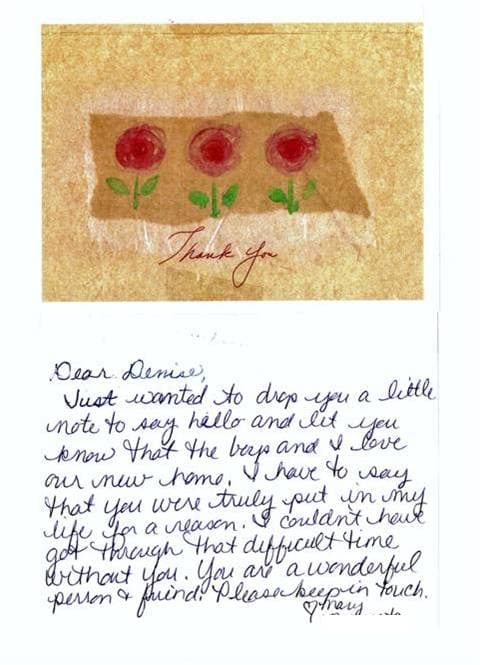 Thank You
Dear Denise,
Just wanted to drop you a little
note to say hello and let you
know that the boys and I love
our new home. I have to say
that you were truly put in my
life for a reason. I couldn't have
got through that difficult time
without you. You are a wonderful
person & friend. Please keep in touch.
♡ Mary